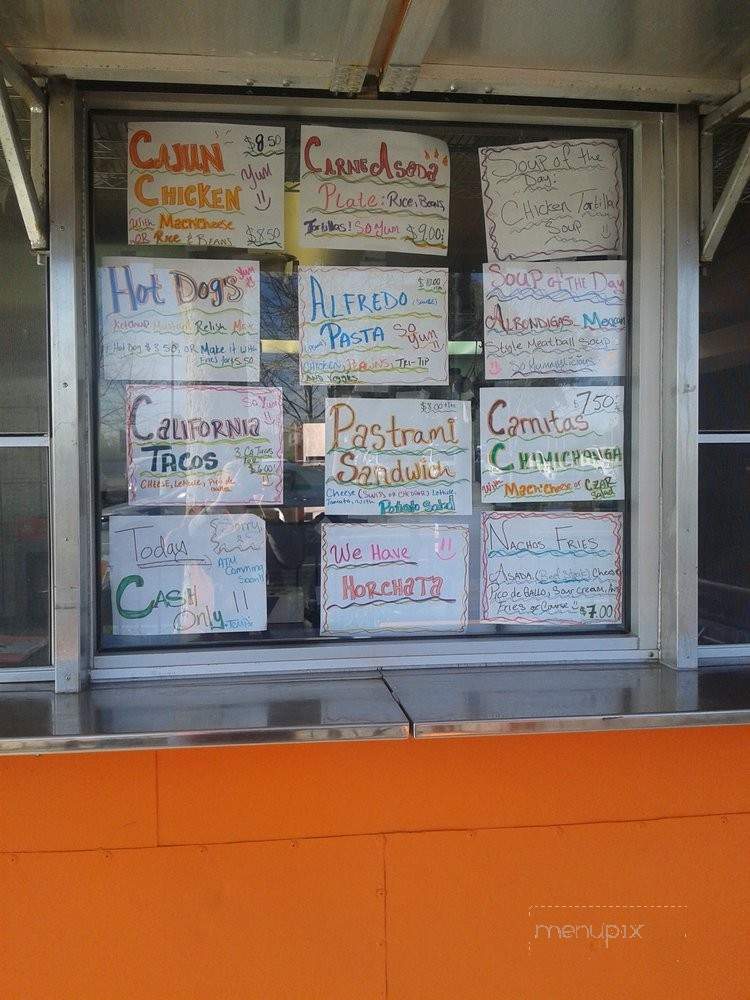 CAJUN $8.50
CHICKEN Yum
With Mac'n'Cheese
OR Rice & Beans $8.50
CARNE ASADA
Plate: Rice, Beans
Tortillas! So Yum $9.00
Soup of the
Day:
Chicken Tortilla
Soup
Hot Dogs Yum
Ketchup Mustard Relish
Hot Dog $3.50, OR Make it With
Fries for $5.50
ALFREDO (SAUCE) $10.00
PASTA So Yum
CHICKEN, PRAWNS, TRI-TIP
SOUP OF THE DAY
ALBONDIGAS Mexican
Style Meatball Soup
So Yummylicious
So Yum
CALIFORNIA
TACOS 3 CA Tacos
FOR $6.00
CHEESE, Lettuce, Pico de
$8.00
Pastrami
Sandwich
Cheese (Swiss or CHEDDAR) Lettuce,
Tomato, With Potato Salad
$7.50
Carnitas
CHIMICHANGA
With Mac'n'cheese or CZAR
Salad
Today Sorry
CASH ATM
Only Comming
Soon!!
We Have
HORCHATA
NACHOS FRIES
ASADA (Beef Steak) Cheese
Pico de GALLO, Sour cream, And
Fries of Course $7.00
menupix